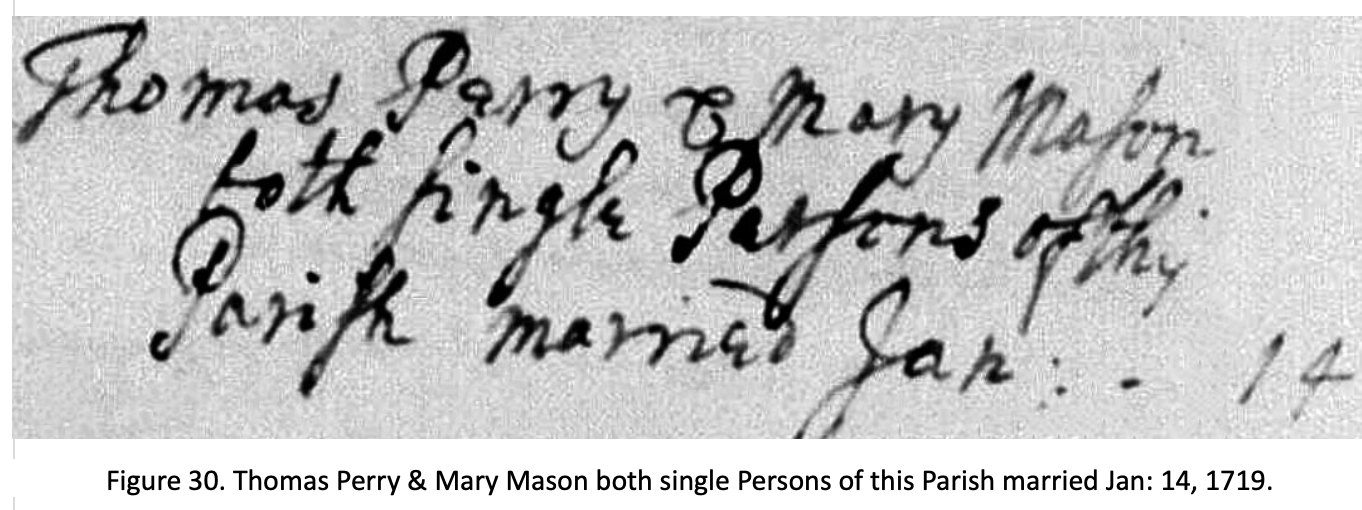 Thomas Perry & Mary Maſon
both ſingle Perſons of thiſ
Pariſh married Jan: - 14
Figure 30. Thomas Perry & Mary Mason both single Persons of this Parish married Jan: 14, 1719.